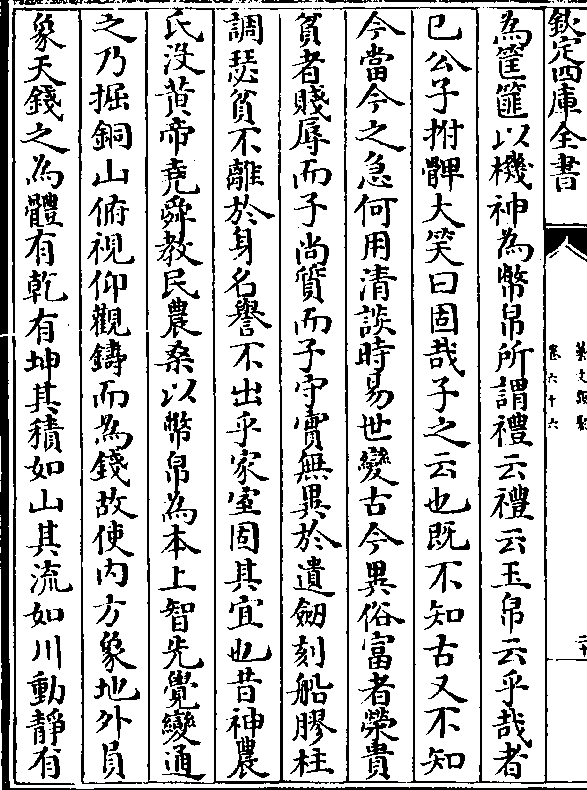 欽定四庫全書
藝文類聚
卷六十六
為筐篚以機神為幣帛所謂禮云禮云玉帛云乎哉者
已公子拊髀大笑曰固哉子之云也既不知古又不知
今當今之急何用清談時易世變古今異俗富者榮貴
貧者賤辱而子尚質而子守實無異於遺劒刻船膠柱
調瑟貧不離於身名譽不出乎家室固其宜也昔神農
氏沒黃帝堯舜教民農桑以幣帛為本上智先覺變通
之乃掘銅山俯視仰觀鑄而為錢故使内方象地外員
象天錢之為體有乾有坤其積如山其流如川動靜有